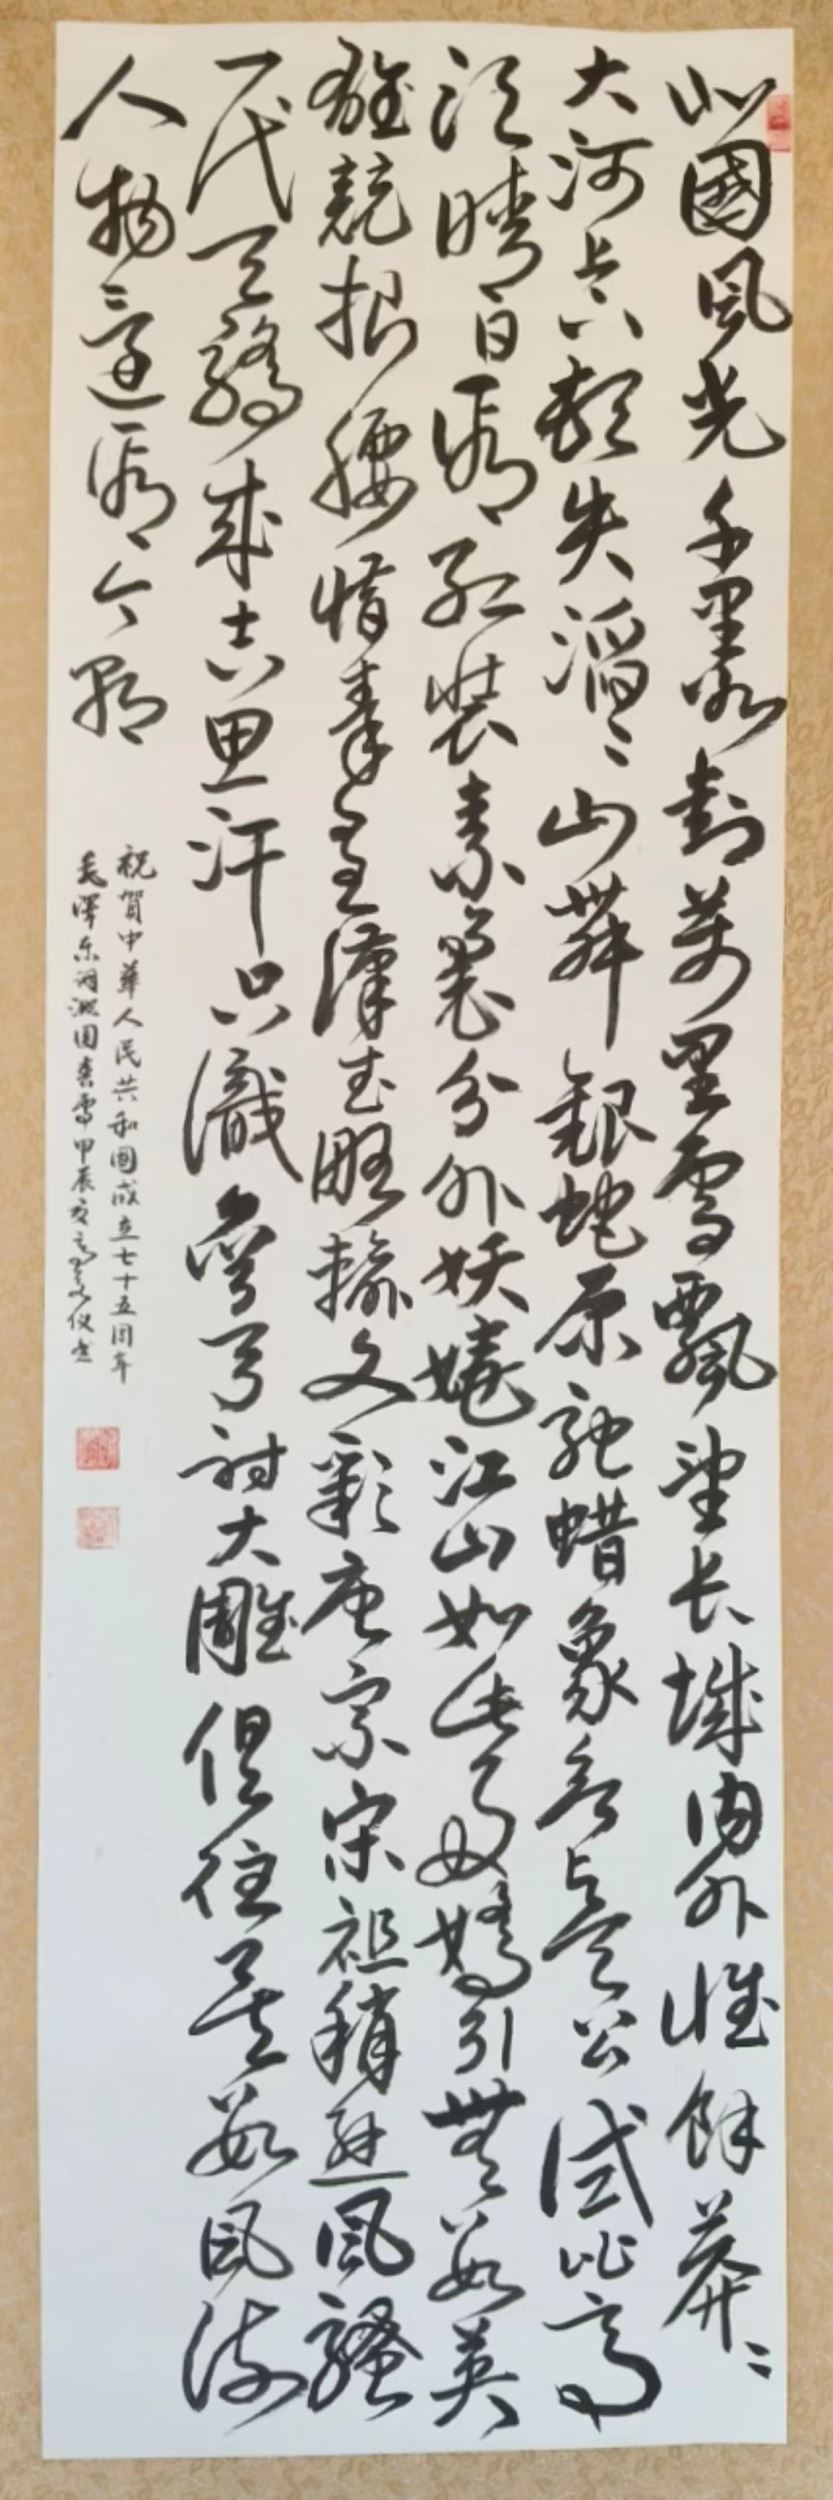 北國風光千里冰封萬里雪飄望长城内外惟餘莽〻
大河上下頓失滔〻山舞銀蛇原馳蜡象欲與天公試比高
須晴日看紅裝素裹分外妖嬈江山如此多嬌引無數英
雄競折腰惜秦皇漢武略輸文彩唐宗宋祖稍遜風騷
一代天驕成吉思汗只識彎弓射大雕俱往矣數風流
人物還看今朝
祝賀中華人民共和國成立七十五周年
毛澤东词沁园春雪甲辰夏仪书